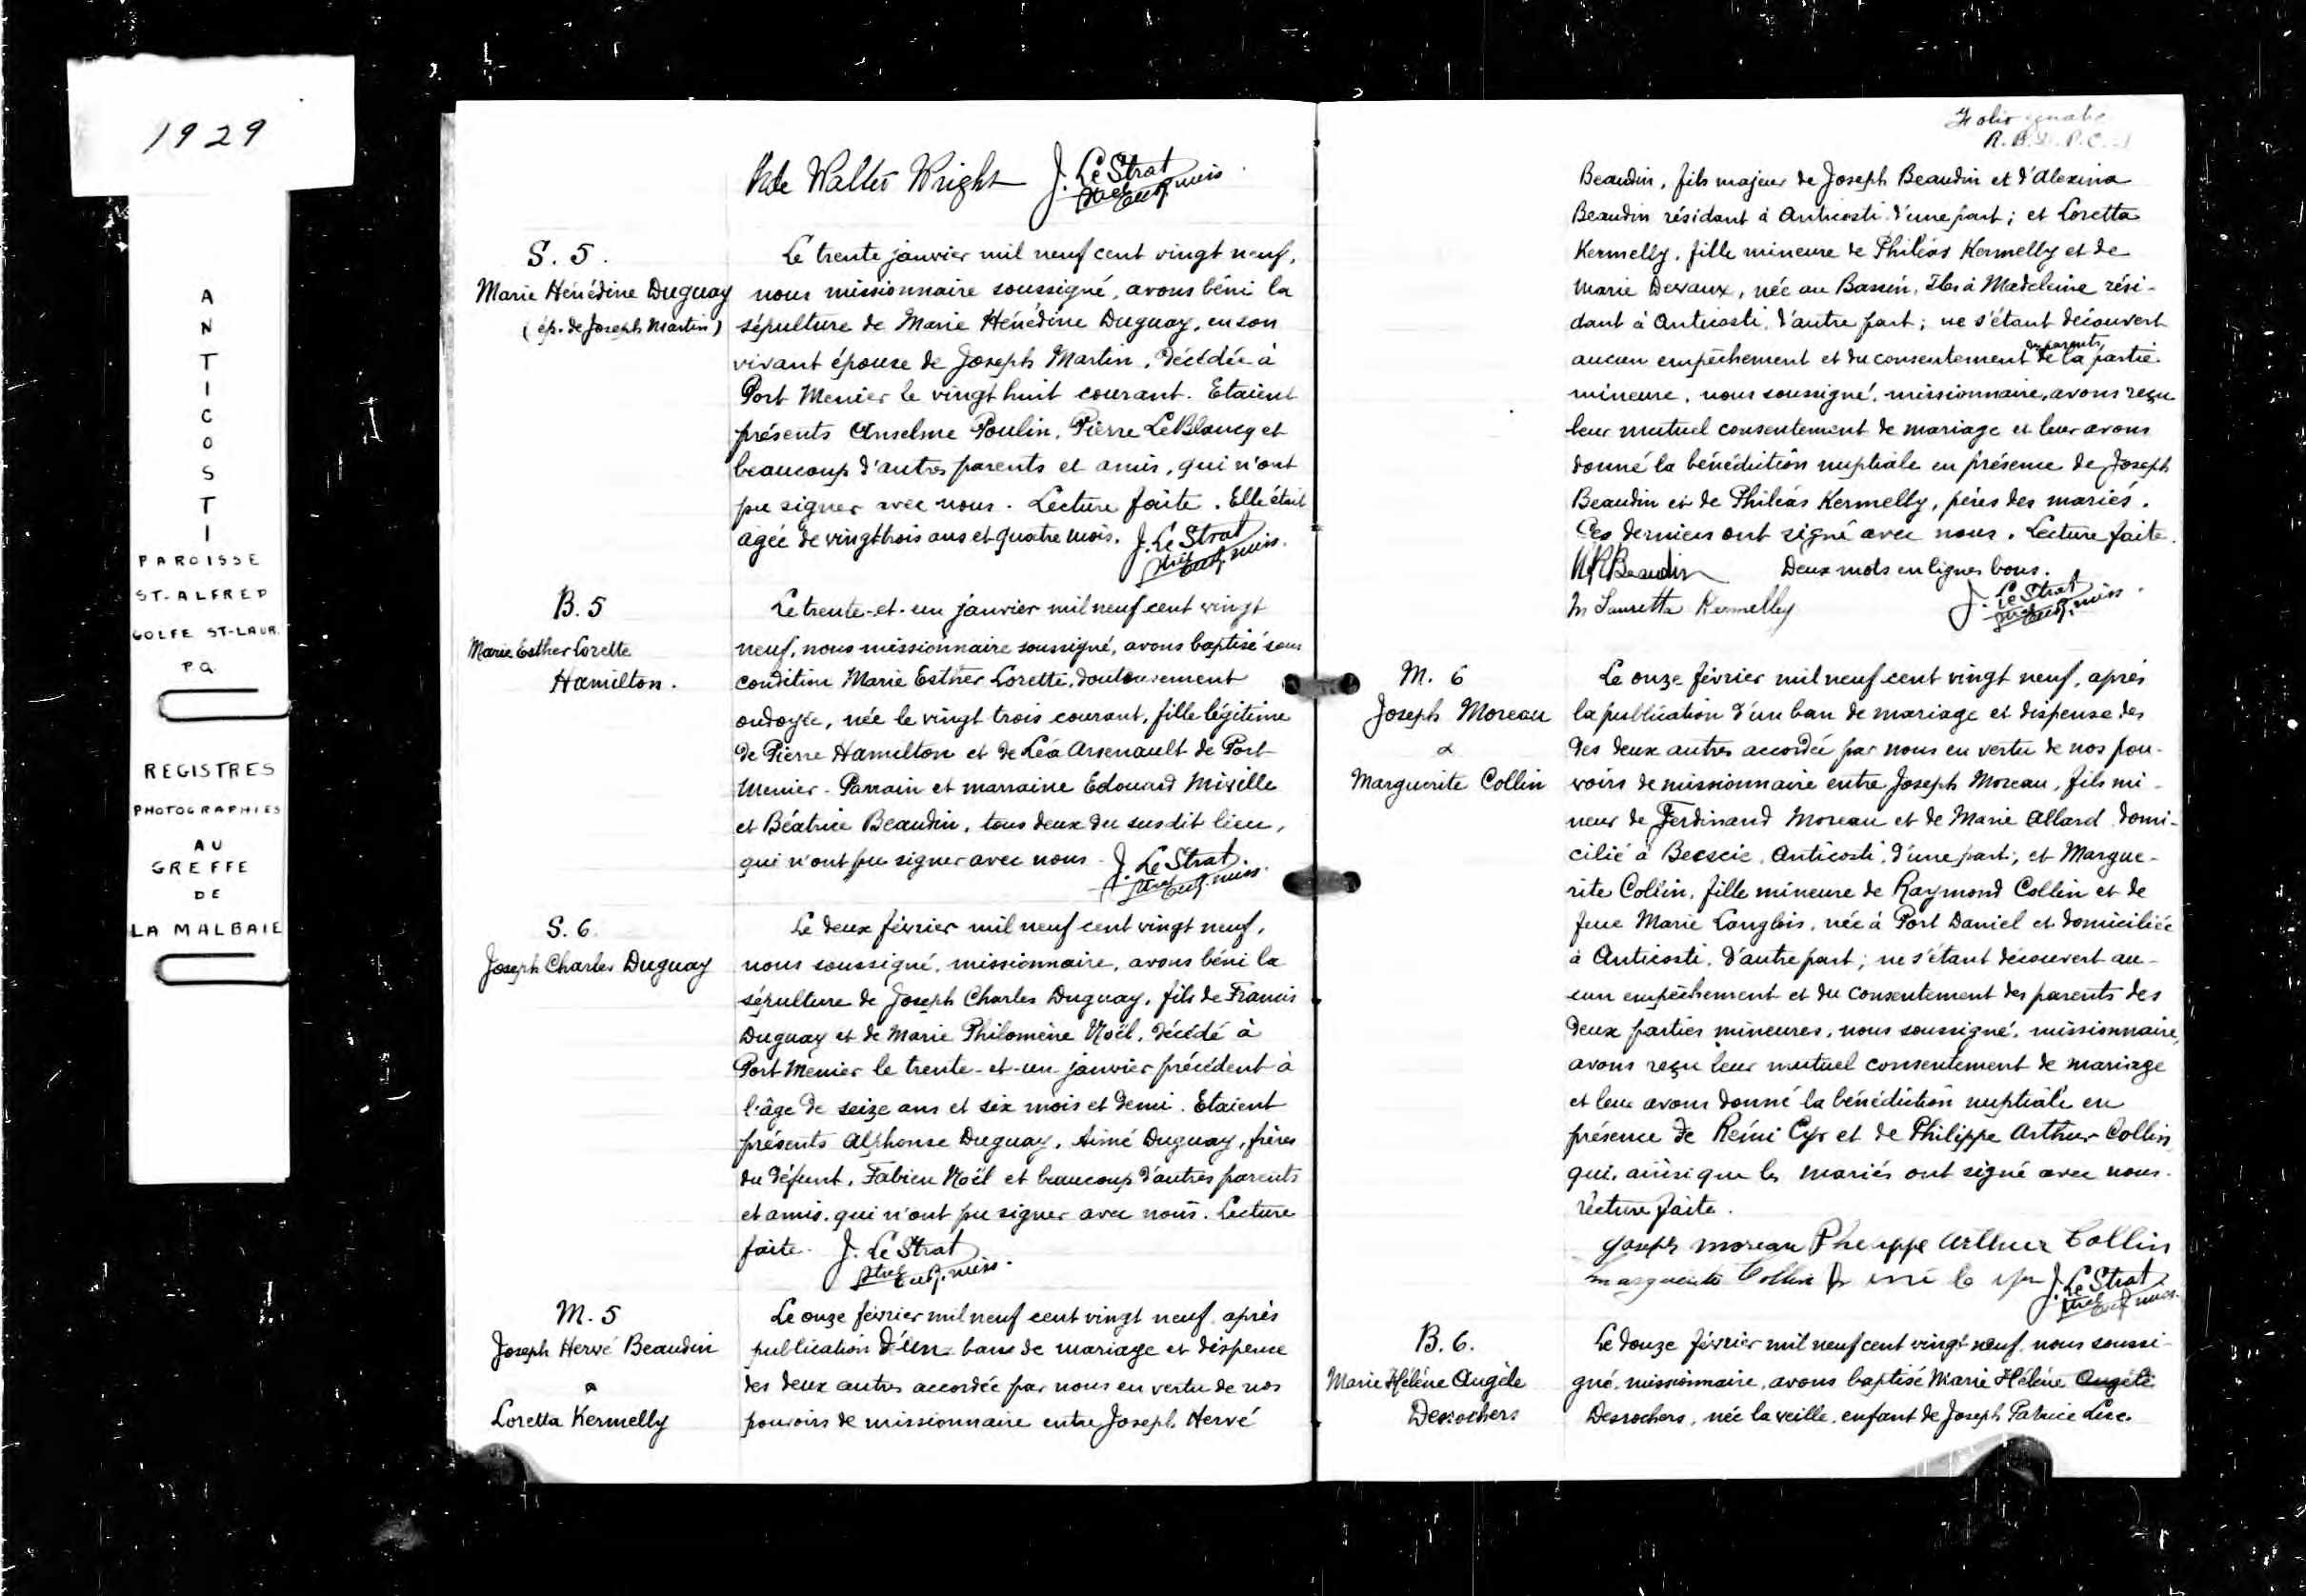 1929
ANTICOSTI
PAROISSE
ST-ALFRED
GOLFE ST-LAUR.
P.Q.
REGISTRES
PHOTOGRAPHIES
AU
GREFFE
DE
LA MALBAIE
Walter Wright J. Le Strat
ptre Eud. miss.
S. 5.
Marie Hénédine Duguay
(ép. de Joseph Martin)
Le trente janvier mil neuf cent vingt neuf,
nous missionnaire soussigné, avons béni la
sépulture de Marie Hénédine Duguay, en son
vivant épouse de Joseph Martin, décédée à
Port Menier le vingt huit courant. Etaient
présents Anselme Poulin, Pierre LeBlancq et
beaucoup d'autres parents et amis, qui n'ont
pu signer avec nous. Lecture faite. Elle était
agée de vingt trois ans et quatre mois. J. Le Strat
ptre Eud. miss.
B. 5
Marie Esther Lorette
Hamilton.
Le trente-et-un janvier mil neuf cent vingt
neuf, nous missionnaire soussigné, avons baptisé sous
condition Marie Esther Lorette, douteusement
ondoyée, née le vingt trois courant, fille légitime
de Pierre Hamilton et de Léa Arsenault de Port
Menier - Parrain et marraine Edouard Miville
et Béatrice Beaudin, tous deux du susdit lieu,
qui n'ont pu signer avec nous - J. Le Strat.
ptre Eud. miss.
S. 6.
Joseph Charles Duguay
Le deux février mil neuf cent vingt neuf,
nous soussigné, missionnaire, avons béni la
sépulture de Joseph Charles Duguay, fils de Francis
Duguay et de Marie Philomène Noël, décédé à
Port-Menier le trente-et-un janvier précédent à
l'âge de seize ans et six mois et demi. Etaient
présents Alphonse Duguay, Aimé Duguay, frères
du défunt, Fabien Noël et beaucoup d'autres parents
et amis, qui n'ont pu signer avec nous. Lecture
faite. J. Le Strat
ptre Eud. miss.
M. 5
Joseph Hervé Beaudin
&
Loretta Kermelly
Le onze février mil neuf cent vingt neuf après
publication d'un bans de mariage et dispense
des deux autres accordée par nous en vertu de nos
pouvoirs de missionnaire entre Joseph Hervé
Folio quatre
Beaudin, fils majeur de Joseph Beaudin et d'Alexina
Beaudin résidant à Anticosti d'une part; et Loretta
Kermelly, fille mineure de Philéas Kermelly et de
Marie Devaux, née au Bassin, Iles à Madeleine rési-
dant à Anticosti, d'autre part; ne s'étant découvert
aucun empêchement et du consentement des parents de la partie
mineure, nous soussigné, missionnaire, avons reçu
leur mutuel consentement de mariage et leur avons
donné la bénédiction nuptiale en présence de Joseph
Beaudin et de Philéas Kermelly, pères des mariés.
Ces derniers ont signé avec nous. Lecture faite.
Beaudin Deux mots en lignes bons.
M Lauretta Kermelly J. Le Strat
ptre Eud. miss.
M. 6
Joseph Moreau
&
Marguerite Collin
Le onze février mil neuf cent vingt neuf, après
la publication d'un ban de mariage et dispense des
des deux autres accordée par nous en vertu de nos pou-
voirs de missionnaire entre Joseph Moreau, fils mi-
neur de Ferdinand Moreau et de Marie Allard domi-
cilié à Becscie, Anticosti, d'une part; et Margue-
rite Collin, fille mineure de Raymond Collin et de
feue Marie Langlois, née à Port Daniel et domiciliée
à Anticosti, d'autre part; ne s'étant découvert au-
cun empêchement et du consentement des parents des
deux parties mineures, nous soussigné, missionnaire,
avons reçu leur mutuel consentement de mariage
et leur avons donné la bénédiction nuptiale en
présence de Rémi Cyr et de Philippe Arthur Collin,
qui, ainsi que les mariés ont signé avec nous.
Lecture faite.
Joseph Moreau Philippe Arthur Collin
Marguerite Collin J. Le Strat
ptre Eud miss.
B. 6.
Marie Hélène Angèle
Desrochers
Le douze février mil neuf cent vingt neuf, nous soussi-
gné, missionnaire, avons baptisé Marie Hélène Angèle
Desrochers, née la veille, enfant de Joseph Patrice Luc